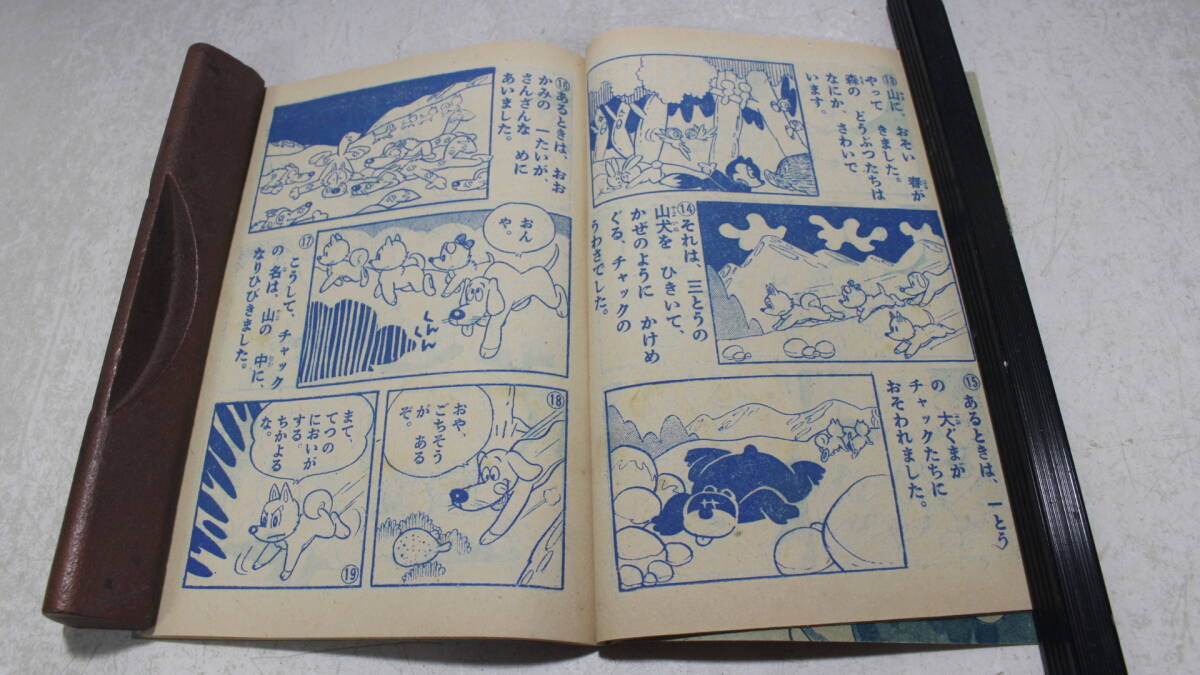 ⑬山に、おそい 春が
やって きました。
森の どうぶつたちは
なにか、さわいで
います。
⑭それは、三とうの
山犬を ひきいて、
かぜのように かけめ
ぐる、チャックの
うわさでした。
⑮あるときは、一とう
の 大ぐまが
チャックたちに
おそわれました。
⑯あるときは、おお
かみの 一たいが、
さんざんな めに
あいました。
おん
や。
くんくん
⑰
こうして、チャック
の 名は、山の 中に、
なりひびきました。
⑱
おや、
ごちそう
が ある
ぞ。
まて、
てつの
においが
する。
ちかよる
な。
⑲